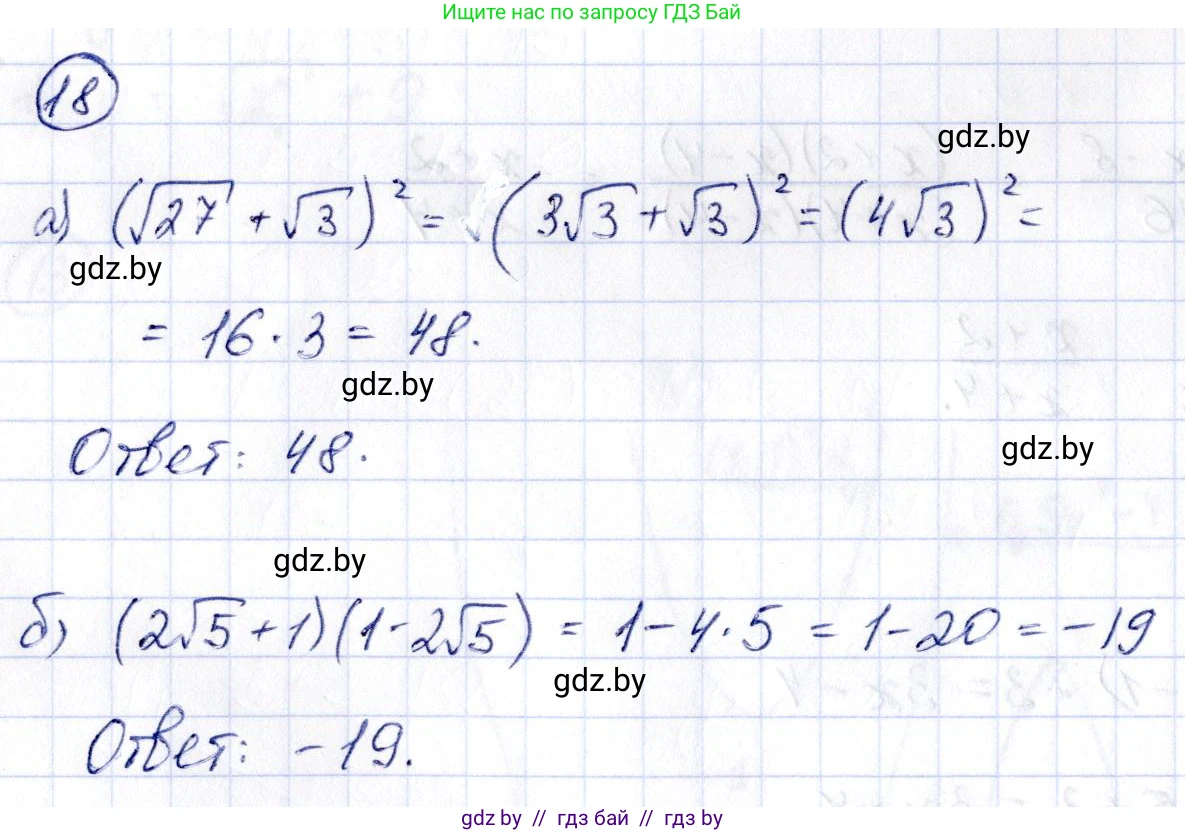 Ищите нас по запросу ГДЗ Бай
18
gdz.by
а) (√27 + √3)² = (3√3 + √3)² = (4√3)² =
gdz.by
= 16 · 3 = 48.
gdz.by
Ответ: 48.
gdz.by
gdz.by
б) (2√5 + 1)(1 - 2√5) = 1 - 4 · 5 = 1 - 20 = -19
gdz.by
Ответ: -19.
gdz.by // гдз бай // gdz by